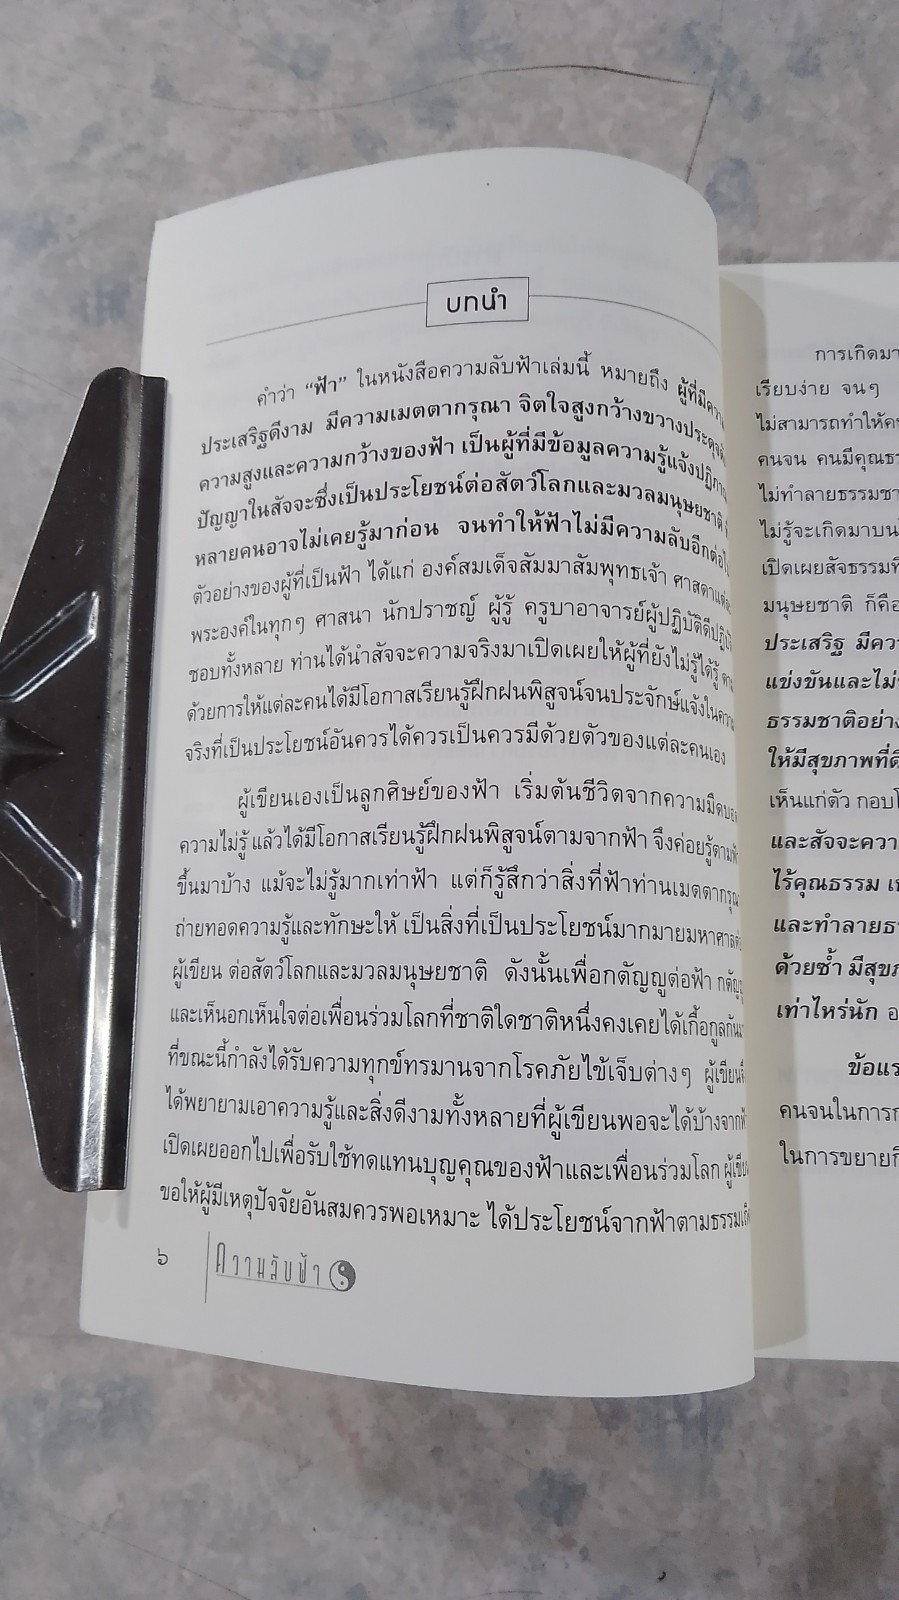 บทนำ
คำว่า “ฟ้า” ในหนังสือความลับฟ้าเล่มนี้ หมายถึง ผู้ที่มีความ
ประเสริฐดีงาม มีความเมตตากรุณา จิตใจสูงกว้างขวางประดุจดัง
ความสูงและความกว้างของฟ้า เป็นผู้ที่มีข้อมูลความรู้แจ้งปฏิภาณ
ปัญญาในสัจจะซึ่งเป็นประโยชน์ต่อสัตว์โลกและมวลมนุษยชาติ
หลายคนอาจไม่เคยรู้มาก่อน จนทำให้ฟ้าไม่มีความลับอีกต่อไป
ตัวอย่างของผู้ที่เป็นฟ้า ได้แก่ องค์สมเด็จสัมมาสัมพุทธเจ้า ศาสดาแต่ละ
พระองค์ในทุกๆ ศาสนา นักปราชญ์ ผู้รู้ ครูบาอาจารย์ผู้ปฏิบัติดีปฏิบัติ
ชอบทั้งหลาย ท่านได้นำสัจจะความจริงมาเปิดเผยให้ผู้ที่ยังไม่รู้ได้รู้ ตาม
ด้วยการให้แต่ละคนได้มีโอกาสเรียนรู้ฝึกฝนพิสูจน์จนประจักษ์แจ้งในความ
จริงที่เป็นประโยชน์อันควรได้ควรเป็นควรมีด้วยตัวของแต่ละคนเอง
ผู้เขียนเองเป็นลูกศิษย์ของฟ้า เริ่มต้นชีวิตจากความมืดบอด
ความไม่รู้ แล้วได้มีโอกาสเรียนรู้ฝึกฝนพิสูจน์ตามจากฟ้า จึงค่อยรู้ตามฟ้า
ขึ้นมาบ้าง แม้จะไม่รู้มากเท่าฟ้า แต่ก็รู้สึกว่าสิ่งที่ฟ้าท่านเมตตากรุณา
ถ่ายทอดความรู้และทักษะให้ เป็นสิ่งที่เป็นประโยชน์มากมายมหาศาลต่อ
ผู้เขียน ต่อสัตว์โลกและมวลมนุษยชาติ ดังนั้นเพื่อกตัญญูต่อฟ้า
และเห็นอกเห็นใจต่อเพื่อนร่วมโลกที่ชาติใดชาติหนึ่งคงเคยได้เกื้อกูลกันมา
ที่ขณะนี้กำลังได้รับความทุกข์ทรมานจากโรคภัยไข้เจ็บต่างๆ ผู้เขียนจึง
ได้พยายามเอาความรู้และสิ่งดีงามทั้งหลายที่ผู้เขียนพอจะได้บ้างจากฟ้า
เปิดเผยออกไปเพื่อรับใช้ทดแทนบุญคุณของฟ้าและเพื่อนร่วมโลก ผู้เขียน
ขอให้ผู้มีเหตุปัจจัยอันสมควรพอเหมาะ ได้ประโยชน์จากฟ้าตามธรรมเถิด
๖ ความลับฟ้า
การเกิดมา
เรียบง่าย จนๆ
ไม่สามารถทำให้
คนจน คนมีคุณธ
ไม่ทำลายธรรมชา
ไม่รู้จะเกิดมาบน
เปิดเผยสัจธรรมที
มนุษยชาติ ก็คือ
ประเสริฐ มีควา
แข่งขันและไม่
ธรรมชาติอย่าง
ให้มีสุขภาพที่ดี
เห็นแก่ตัว กอบโ
และสัจจะควา
ไร้คุณธรรม เ
และทำลายธร
ด้วยซ้ำ มีสุขภ
เท่าไหร่นัก อ
ข้อแร
คนจนในการก
ในการขยายกิ